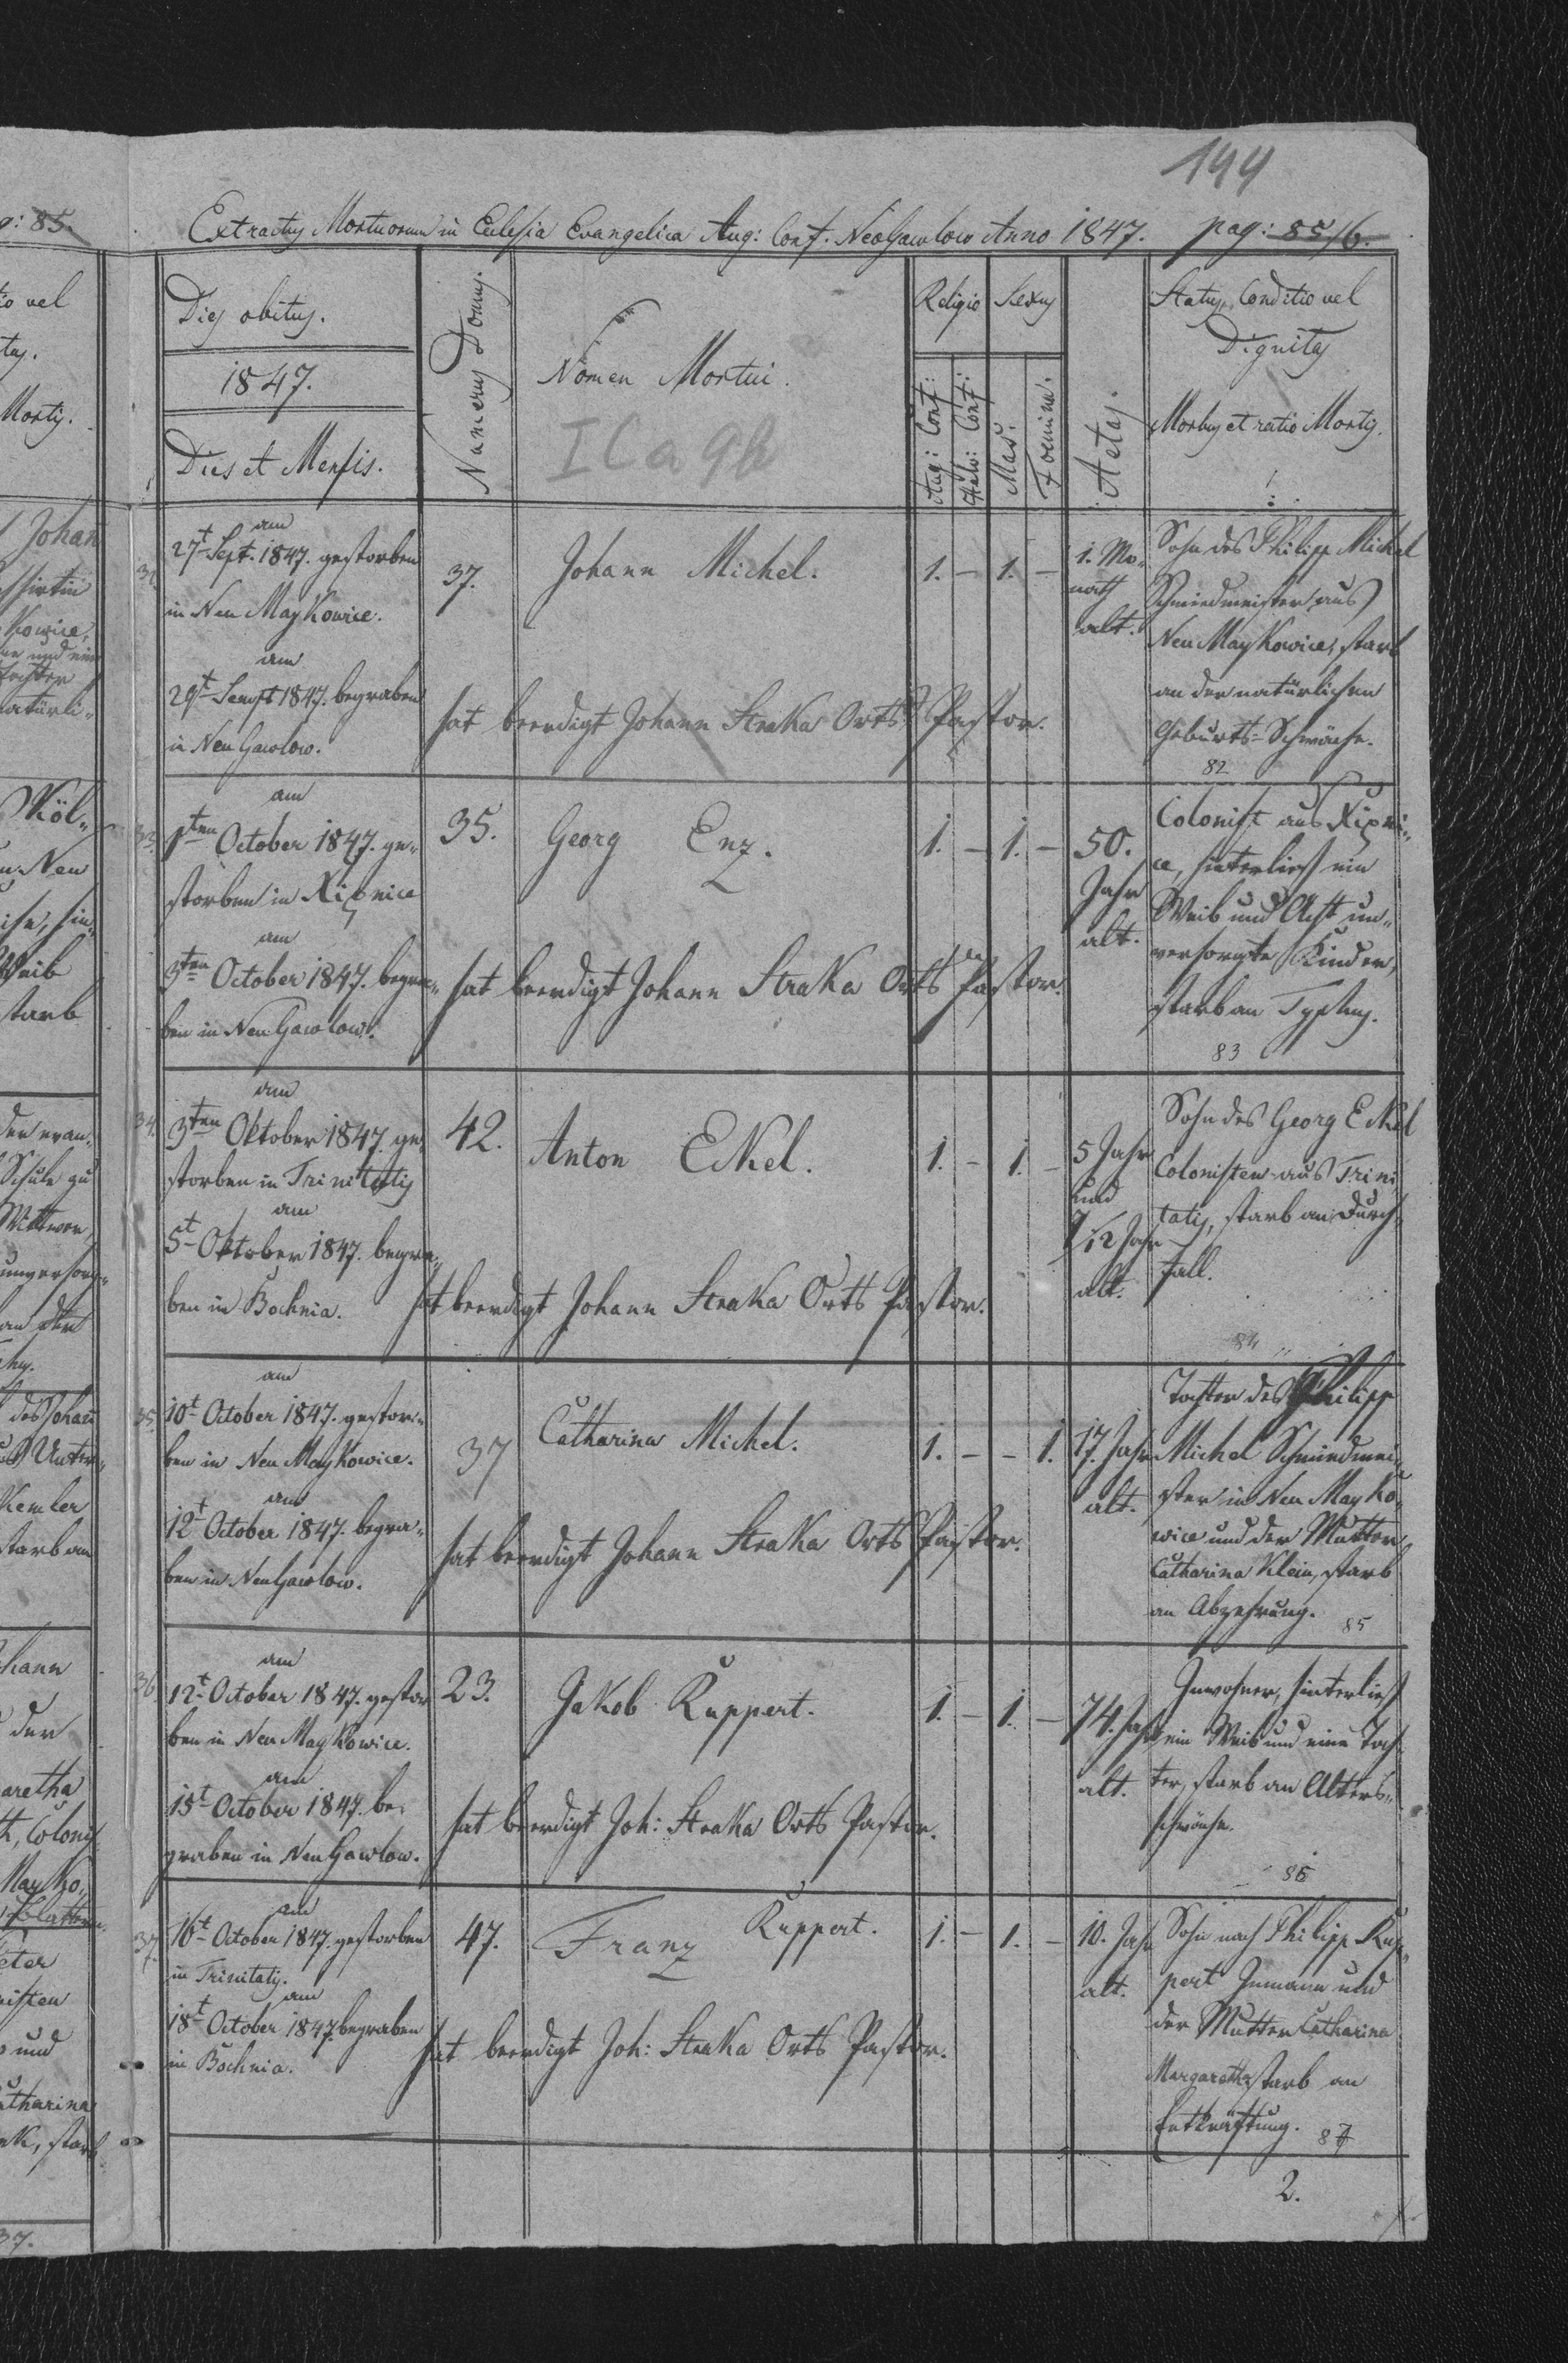 144
g: 85.
Extractus Mortuorum in Eclesia Evangelica Aug: Conf. NeoGawlow Anno 1847. pag: 85/6.
Dies obitus.
1847.
Dies et Mensis.
Numerus Domus.
Nomen Mortui.
ICa9b
Religio
Aug: Conf:
Helv: Conf:
Sexus
Mas.
Foemina.
Aetas.
Status, Conditio vel
Dignitas
Morbus et ratio Mortis.
am
27t Sept. 1847. gestorben
in Neu Maykowice.
am
29t Sempt 1847. begraben
in Neu Gawlow.
37.
Johann Michel.
1. – 1. –
1. Mo-
nath
alt.
Sohn des Philipp Michel
Schmiedmeister aus
Neu Maykowice, starb
an der natürlichen
Geburts-Schwäche.
82
hat beerdigt Johann Straka Orts Pastor.
33.
am
1ten October 1847. ge-
storben in Xiȩnice
am
3ten October 1847. begra-
ben in Neu Gawlow.
35.
Georg Enz.
1. – 1. –
50.
Jahr
alt.
Colonist aus Xiȩni-
ce, hinterließ ein
Weib und Acht un-
versorgte Kinder,
starb an Typhus.
83
hat beerdigt Johann Straka Orts Pastor.
34.
am
3ten Oktober 1847. ge-
storben in Trinitatis
am
5t Oktober 1847. begra-
ben in Bochnia.
42.
Anton Eckel.
1. – 1. –
5 Jahr
und
7/12 Jahr
alt.
Sohn des Georg Eckel
Colonisten aus Trini
tatis, starb an Durch-
fall.
84
hat beerdigt Johann Straka Orts Pastor.
35.
am
10t October 1847. gestor-
ben in Neu Maykowice.
am
12t October 1847. begra-
ben in Neu Gawlow.
37
Catharina Michel.
1. – – 1.
17. Jahr
alt.
Tochter des Philipp
Michel Schmiedmei-
ster in Neu Mayko-
wice und der Mutter
Catharina Klein, starb
an Abzehrung.
85
hat beerdigt Johann Straka Orts Pastor.
36.
am
12t October 1847. gestor
ben in Neu Maykowice.
am
15t October 1847. be-
graben in Neu Gawlow.
23.
Jakob Ruppert.
1. – 1. –
74. Jahr
alt.
Inwohner, hinterließ
ein Weib und eine Toch-
ter, starb an Alters-
schwäche.
86
hat beerdigt Joh: Straka Orts Pastor.
37.
am
16t October 1847. gestorben
in Trinitatis.
am
18t October 1847. begraben
in Bochnia.
47.
Franz Ruppert.
1. – 1. –
10. Jahr
alt.
Sohn nach Philipp Rup-
pert Inmann und
der Mutter Catharina
Margaretha starb an
Entkräftung.
87
hat beerdigt Joh: Straka Orts Pastor.
2.